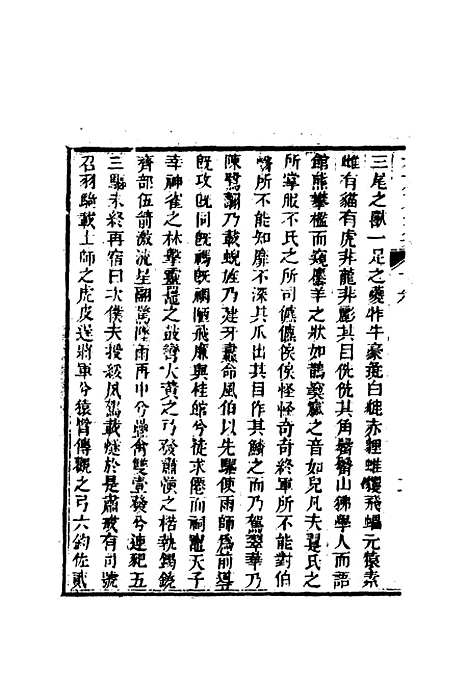 三尾之獸一足之夔牸牛豪彘白鹿赤貍蜼玃飛蝠元猿素
雌有貓有虎非龍非彲其目侁侁其角鬱鬱山狒學人而語
館熊攀檻而窺麢羊之狀如鵲窫窳之音如兒凡夫翨氏之
所掌服不氏之所司儦儦俟俟怪怪奇奇終軍所不能對伯
翳所不能知靡不深其爪出其目作其鱗之而乃駕翠華乃
陳鷺翿乃載蜺旌乃建牙纛命風伯以先驅使雨師爲前導
既攻既同既禡既禂陋飛廉與桂館兮徒求僊而祠竈天子
幸神雀之林擊靈鼉之鼓彎大黃之弓發肅慎之楛執鐲鐃
齊部伍箭激流星翮驚墮雨再中兮疊禽雙壹發兮連豝五
三驅未終再宿曰次僕夫授綏夙駕載燧於是肅戒有司號
召羽騎載士師之虎皮逞將軍兮猿臂傳觀之弓六鈞佐貳